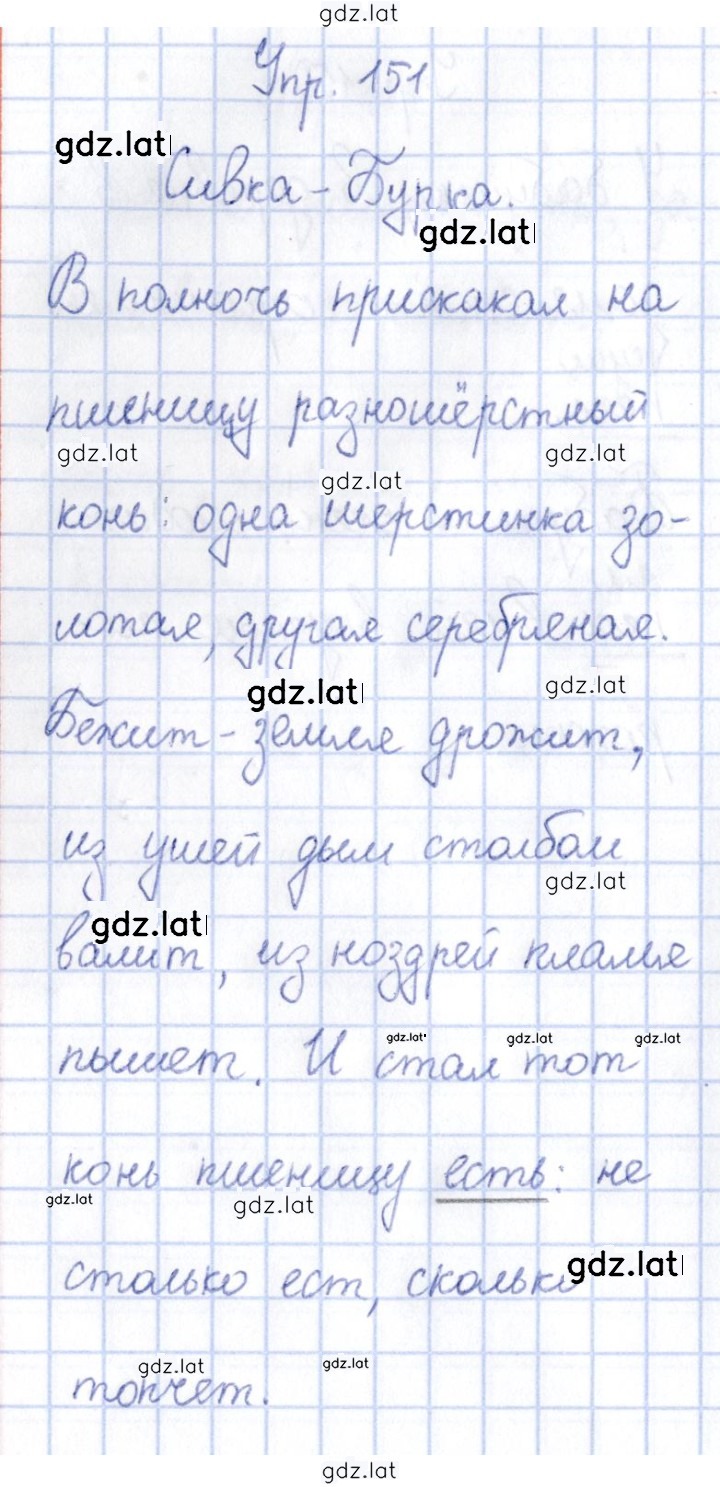 gdz.lat
Упр. 151
gdz.lat
Сивка-Бурка.
gdz.lat
В полночь прискакал на
пшеницу разношёрстный
gdz.lat gdz.lat gdz.lat
конь: одна шерстинка зо-
лотая, другая серебряная.
gdz.lat gdz.lat
Бежит - земля дрожит,
из ушей дым столбом
gdz.lat
gdz.lat
валит, из ноздрей пламя
gdz.lat gdz.lat gdz.lat
пышет. И стал тот
конь пшеницу есть: не
gdz.lat gdz.lat
столько ест, сколько
gdz.lat
gdz.lat gdz.lat
топчет.
gdz.lat